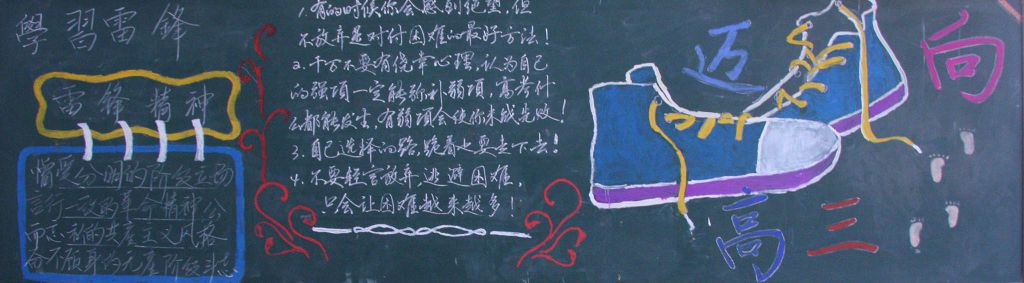 學習雷鋒
雷鋒精神
憎愛分明的阶级立场
言行一致的革命精神 公
而忘私的共产主义风格
奋不顾身的无产阶级斗志
1.有的时候你会感到绝望,但
不放弃是对付困难的最好方法!
2.千万不要有侥幸心理,认为自己
的强项一定能弥补弱项,高考什
么都能发生,有弱项会使你未战先败!
3.自己选择的路,跪着也要走下去!
4.不要轻言放弃,逃避困难,
只会让困难越来越多!
迈向
高三